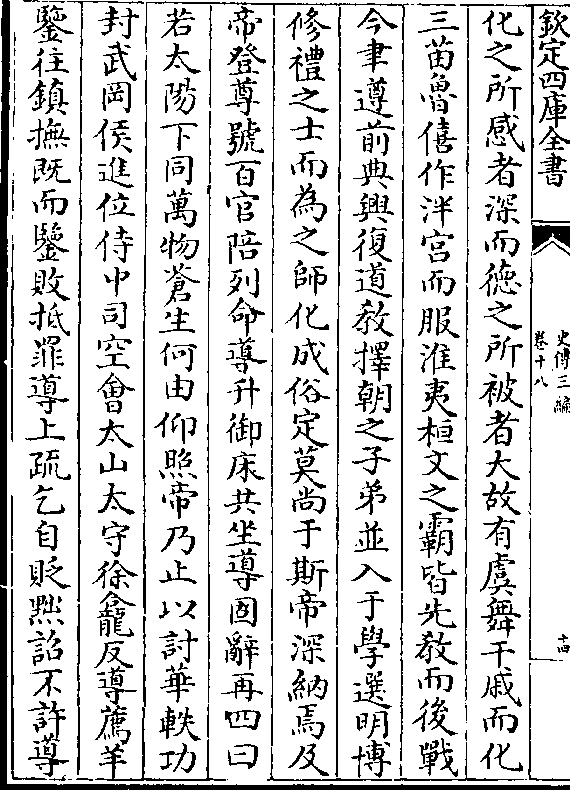 欽定四庫全書
史傳三編
卷十八
十四
化之所感者深而德之所被者大故有虞舞干戚而化
三苗魯僖作泮宮而服淮夷桓文之霸皆先教而後戰
今聿遵前典興復道教擇朝之子弟並入于學選明博
修禮之士而為之師化成俗定莫尚于斯帝深納焉及
帝登尊號百官陪列命導升御床共坐導固辭再四曰
若太陽下同萬物蒼生何由仰照帝乃止以討華軼功
封武岡侯進位侍中司空會太山太守徐龕反導薦羊
鑒往鎮撫既而鑒敗抵罪導上疏乞自貶黜詔不許導